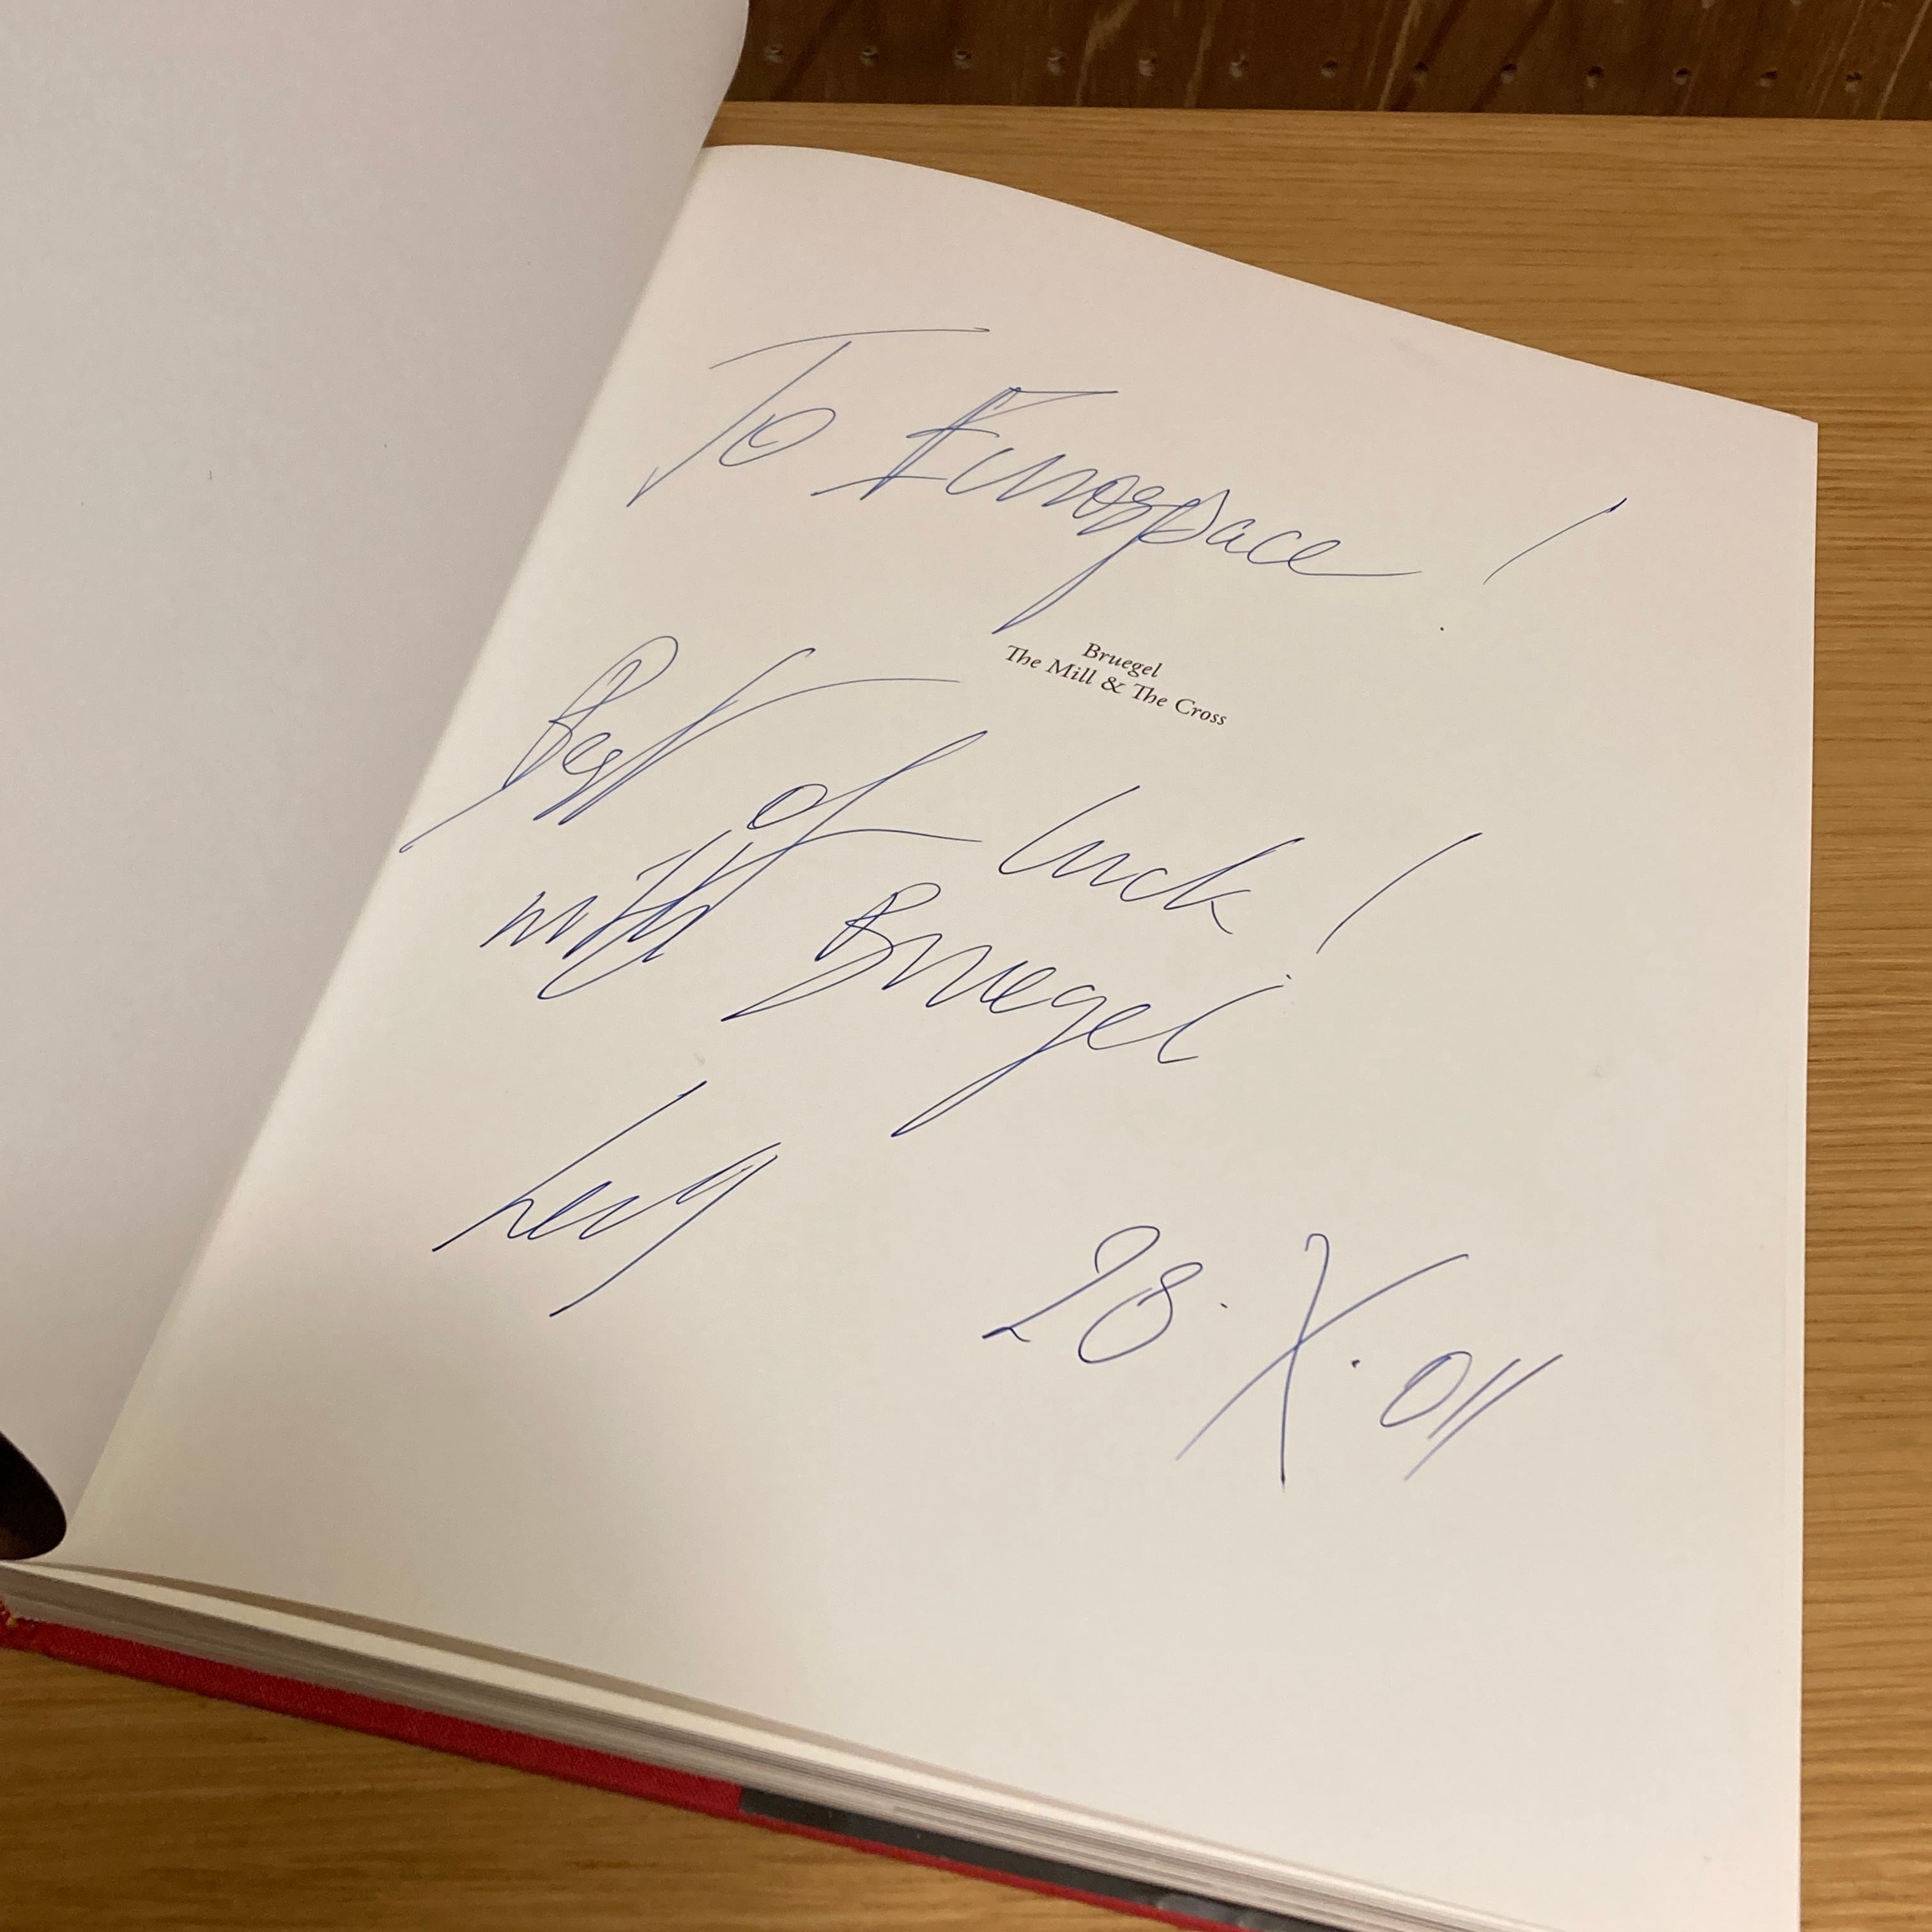 To Eurospace!
Bruegel
The Mill & The Cross
Best of luck!
with Bruegel
28.X.011